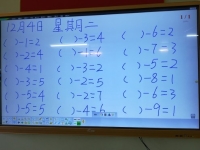 12月4日 星期二
( )-1=2 ( )-3=4 ( )-6=2
( )-2=4 ( )-1=6 ( )-7=3
( )-4=1 ( )-3=2 ( )-5=2
( )-3=5 ( )-2=5 ( )-8=1
( )-1=5 ( )-2=7 ( )-6=3
( )-5=5 ( )-4=6 ( )-9=1